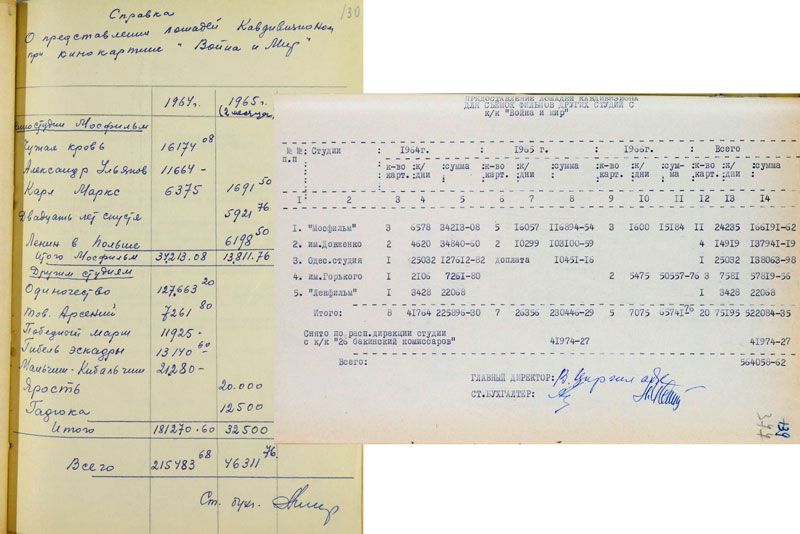 130
Справка
О представлении лошадей Кавдивизионом
при кинокартине "Война и Мир"
1964г. 1965г.
(2 месяца)
Киностудии Мосфильм
Чужая кровь 16174 08
Александр Ульянов 11664 -
Карл Маркс 6375 1691 50
Двадцать лет спустя 5921 76
Ленин в Польше 6198 50
Итого Мосфильм 34213.08 13,811.76
Другим студиям
Одиночество 127,663 20
Тов. Арсений 7261 80
Победный марш 11925 -
Гибель эскадры 13140 60
Мальчиш-Кибальчиш 21280 -
Ярость 20.000
Гадюка 12500
Итого 181270.60 32500
Всего 215483 68 46311 76
Ст. бухг.
ПРЕДОСТАВЛЕНИЕ ЛОШАДЕЙ КАВДИВИЗИОНА
ДЛЯ СЪЕМОК ФИЛЬМОВ ДРУГИХ СТУДИЙ С
к/к "Война и мир"
№ № п.п : Студии : 1964г. : 1965 г. : 1966г. : Всего
к-во карт. :к/дни :сумма к-во карт. :к/дни :сумма :к-во карт. :к/дни :сумма к-во ма карт. :к/дни :сумма
1 2 3 4 5 6 7 8 9 10 11 12 13 14
1. "Мосфильм" 3 6578 34213-08 5 16057 116894-54 3 1600 15184 11 24235 166191-62
2. им.Довженко 2 4620 34840-60 2 10299 103100-59 4 14919 137941-19
3. Одес.студия 1 25032 127612-82 доплата 10451-16 1 25032 138063-98
4. им.Горького 1 2106 7261-80 2 5475 50557-76 3 7581 57819-56
5. "Ленфильм" 1 3428 22068 1 3428 22068
Итого: 8 41764 225896-30 7 26356 230446-29 5 7075 65741 76 20 75195 522084-35
Снято по расп.дирекции студии
с к/к "26 бакинский комиссаров" 41974-27 41974-27
Всего: 564058-62
ГЛАВНЫЙ ДИРЕКТОР:
СТ.БУХГАЛТЕР: